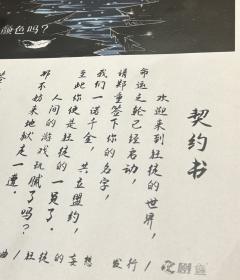 颜色吗?
契约书
欢迎来到狂徒的世界,
命运之轮已经启动,
请郑重签下你的名字,
我们一诺千金,共立盟约,
至此你便是狂徒的一员了。
人间的游戏玩腻了吗?
那不妨来地狱走一遭。
签
曲/狂徒的妄想 发行/